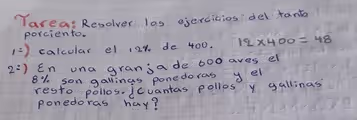 Tarea: Resolver los ejercicios del tanto
porciento.
1=) calcular el 12% de 400. 12x400=48
2=) En una granja de 600 aves el
8% son gallinas ponedoras y el
resto pollos. ¿Cuantas pollos y gallinas
ponedoras hay?